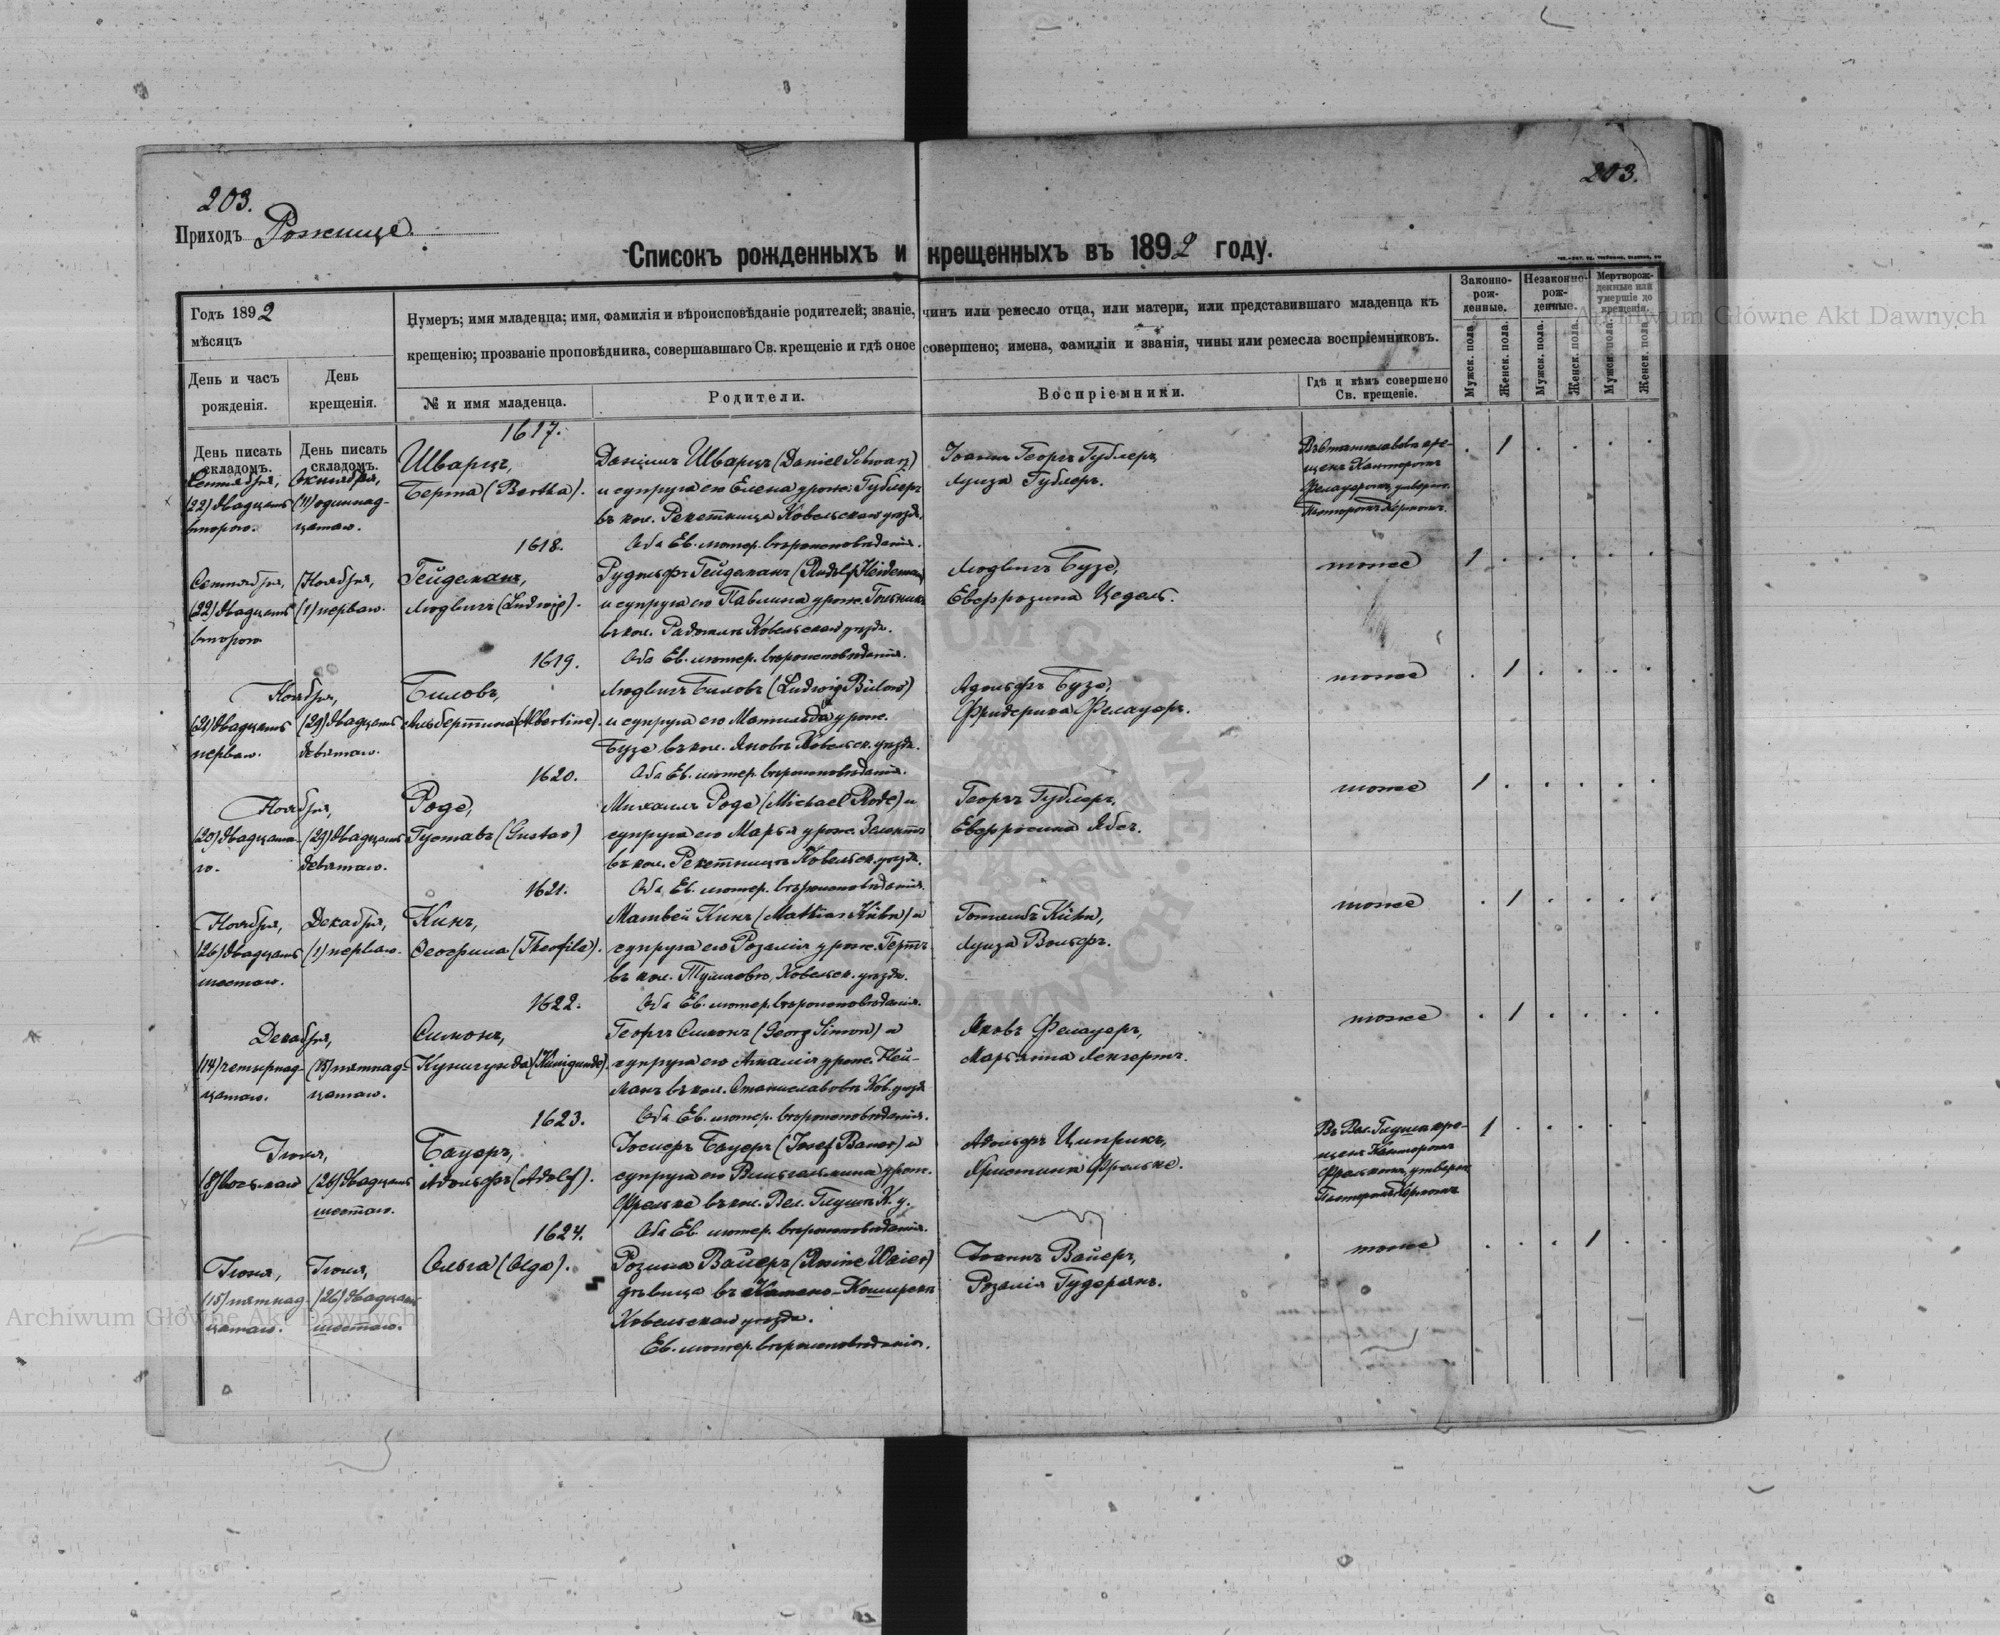 203.
203.
Приходъ Рожище.
Списокъ рожденныхъ и крещенныхъ въ 1892 году.
Годъ 1892
мѣсяцъ
День и часъ
рожденія.
День
крещенія.
Нумеръ; имя младенца; имя, фамилія и вѣроисповѣданіе родителей; званіе, чинъ или ремесло отца, или матери, или представившаго младенца къ
крещенію; прозваніе проповѣдника, совершавшаго Св. крещеніе и гдѣ оное совершено; имена, фамиліи и званія, чины или ремесла воспріемниковъ.
№ и имя младенца.
Родители.
Воспріемники.
Гдѣ и кѣмъ совершено
Св. крещеніе.
Законно-
рож-
денные.
Незаконно-
рож-
денные.
Мертворож-
денные или
умершіе до
крещенія.
Мужск. пола.
Женск. пола.
Мужск. пола.
Женск. пола.
Мужск. пола.
Женск. пола.
День писать
складомъ.
День писать
складомъ.
1617.
Сентября,
(22) двадцать
второго.
Октября,
(11) одиннад-
цатаго.
Шварцъ,
Берта (Bertha).
Даніилъ Шварцъ (Daniel Schwarz)
и супруга его Елена урожд. Гублеръ
въ кол. Рекетница Ковельскаго уѣзда.
Оба Ев. лютер. вѣроисповѣданія.
Іоаннъ Георгъ Гублеръ,
Луиза Гублеръ.
Въ Станиславовѣ кре-
щенъ Канторомъ
Фелауеромъ, утвержд.
Пасторомъ Кермомъ.
1
1618.
Сентября,
(22) двадцать
второго
Ноября,
(1) перваго.
Гейдеманъ,
Людвигъ (Ludwig).
Рудольфъ Гейдеманъ (Rudolf Heideman)
и супруга его Павлина урожд.
въ кол. Радомлѣ Ковельскаго уѣзда.
Оба Ев. лютер. вѣроисповѣданія.
Людвигъ Бузе,
Евфрозина Цедель.
тоже
1
1619.
Ноября,
(21) двадцать
перваго.
(29) двадцать
девятаго.
Биловъ,
Альбертина (Albertine).
Людвигъ Биловъ (Ludwig Bülow)
и супруга его Матильда урожд.
Бузе въ кол. Яновкѣ Ковельск. уѣзда.
Оба Ев. лютер. вѣроисповѣданія.
Адольфъ Бузе,
Фридерика Фелауеръ.
тоже
1
1620.
Ноября,
(20) двадцата-
го.
(29) двадцать
девятаго.
Роде,
Густавъ (Gustav)
Михаилъ Роде (Michael Rode) и
супруга его Марья урожд.
въ кол. Рекетница Ковельск. уѣзда.
Оба Ев. лютер. вѣроисповѣданія.
Георгъ Гублеръ,
Евфросина Ябсъ.
тоже
1
1621.
Ноября,
(26) двадцать
шестаго.
Декабря,
(1) перваго.
Кинъ,
Теофила (Theofile).
Матвей Кинъ (Mathias Kühn) и
супруга его Розалія урожд.
въ кол. Ковельск. уѣзда.
Оба Ев. лютер. вѣроисповѣданія.
Готлибъ Kühn,
Луиза Вольфъ.
тоже
1
1622.
Декабря,
(14) четырнад-
цатаго.
(15) пятнад-
цатаго.
Симонъ,
Кунигунда (Kunigunde).
Георгъ Симонъ (Georg Simon) и
супруга его Амалія урожд. Ней-
манъ въ кол. Станиславовѣ Ков. уѣзда
Оба Ев. лютер. вѣроисповѣданія.
Яковъ Фелауеръ,
Марьянна Ленгертъ.
тоже
1
1623.
Іюня,
(8) восьмаго
(26) двадцать
шестаго.
Бауеръ,
Адольфъ (Adolf).
Іосифъ Бауеръ (Josef Bauer) и
супруга его Вильгельмина урожд.
Фрельке въ кол. Вел. Глуша К. у.
Оба Ев. лютер. вѣроисповѣданія.
Адольфъ Цирикъ,
Христина Фрельке.
Въ Вел. Глуша кре-
щенъ Канторомъ
утвержд.
Пасторомъ Кермомъ
1
1624.
Іюня,
(15) пятнад-
цатаго.
Іюля,
(26) двадцать
шестаго.
Ольга (Olga).
Розина Вайеръ (Rosine Waier)
дѣвица въ Камено-Коширскъ
Ковельскаго уѣзда.
Ев. лютер. вѣроисповѣданія.
Іоаннъ Вайеръ,
Розалія Гудерянъ.
тоже
1
Archiwum Główne Akt Dawnych
Archiwum Główne Akt Dawnych